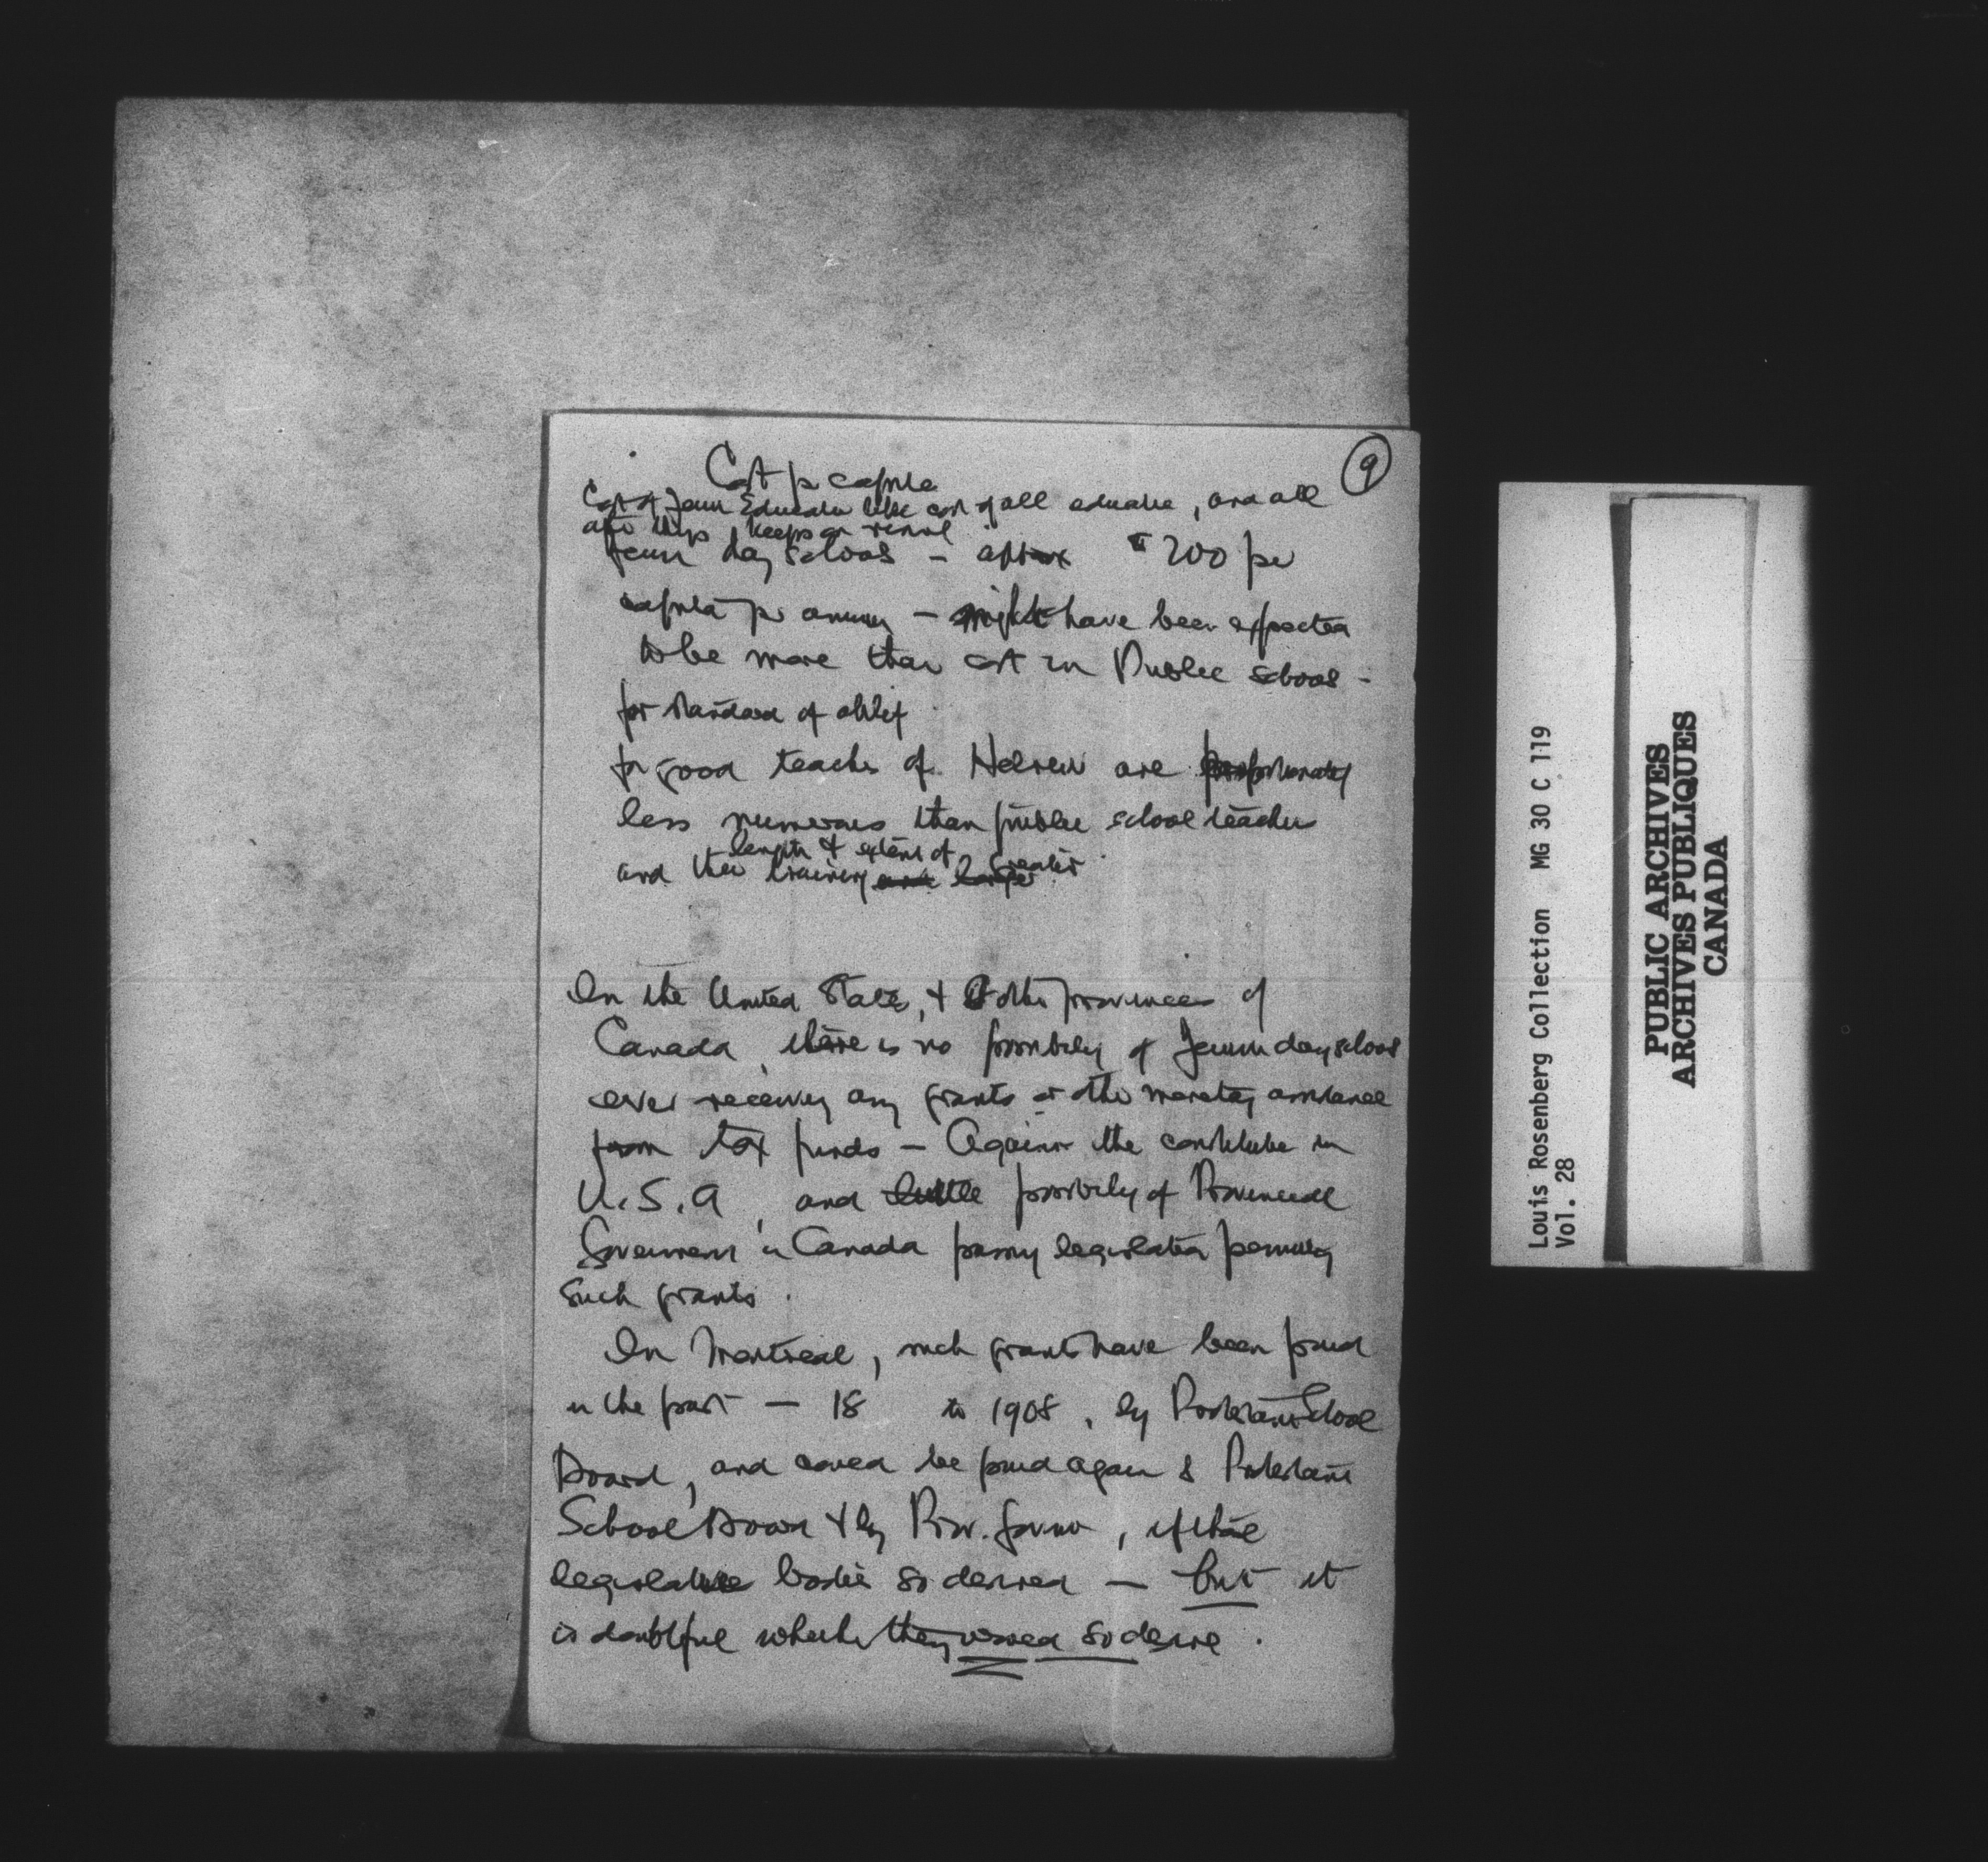 9
Cost per capita
Cost of Jewish Education like cost of all education, and all
other things, keeps on rising
Jewish day schools - approx $200 per
capita per annum - might have been expected
to be more than cost in Public schools -
for standard of
for good teachers of Hebrew are proportionately
less numerous than public school teachers
length & extent of
and their training are larger greater
In the United States, & other provinces of
Canada, there is no possibility of Jewish day schools
ever receiving any grants or other monetary assistance
from tax funds - Against the constitution in
U.S.A, and little possibility of Provincial
Government in Canada passing legislation permitting
such grants.
In Montreal, such grants have been paid
in the past - 18 to 1908, by Protestant School
Board, and could be paid again & Protestant
School Board & by Prov. , if these
legislative bodies so desired - but it
is doubtful whether they would so desire.
Louis Rosenberg Collection MG 30 C 119
Vol. 28
PUBLIC ARCHIVES
ARCHIVES PUBLIQUES
CANADA